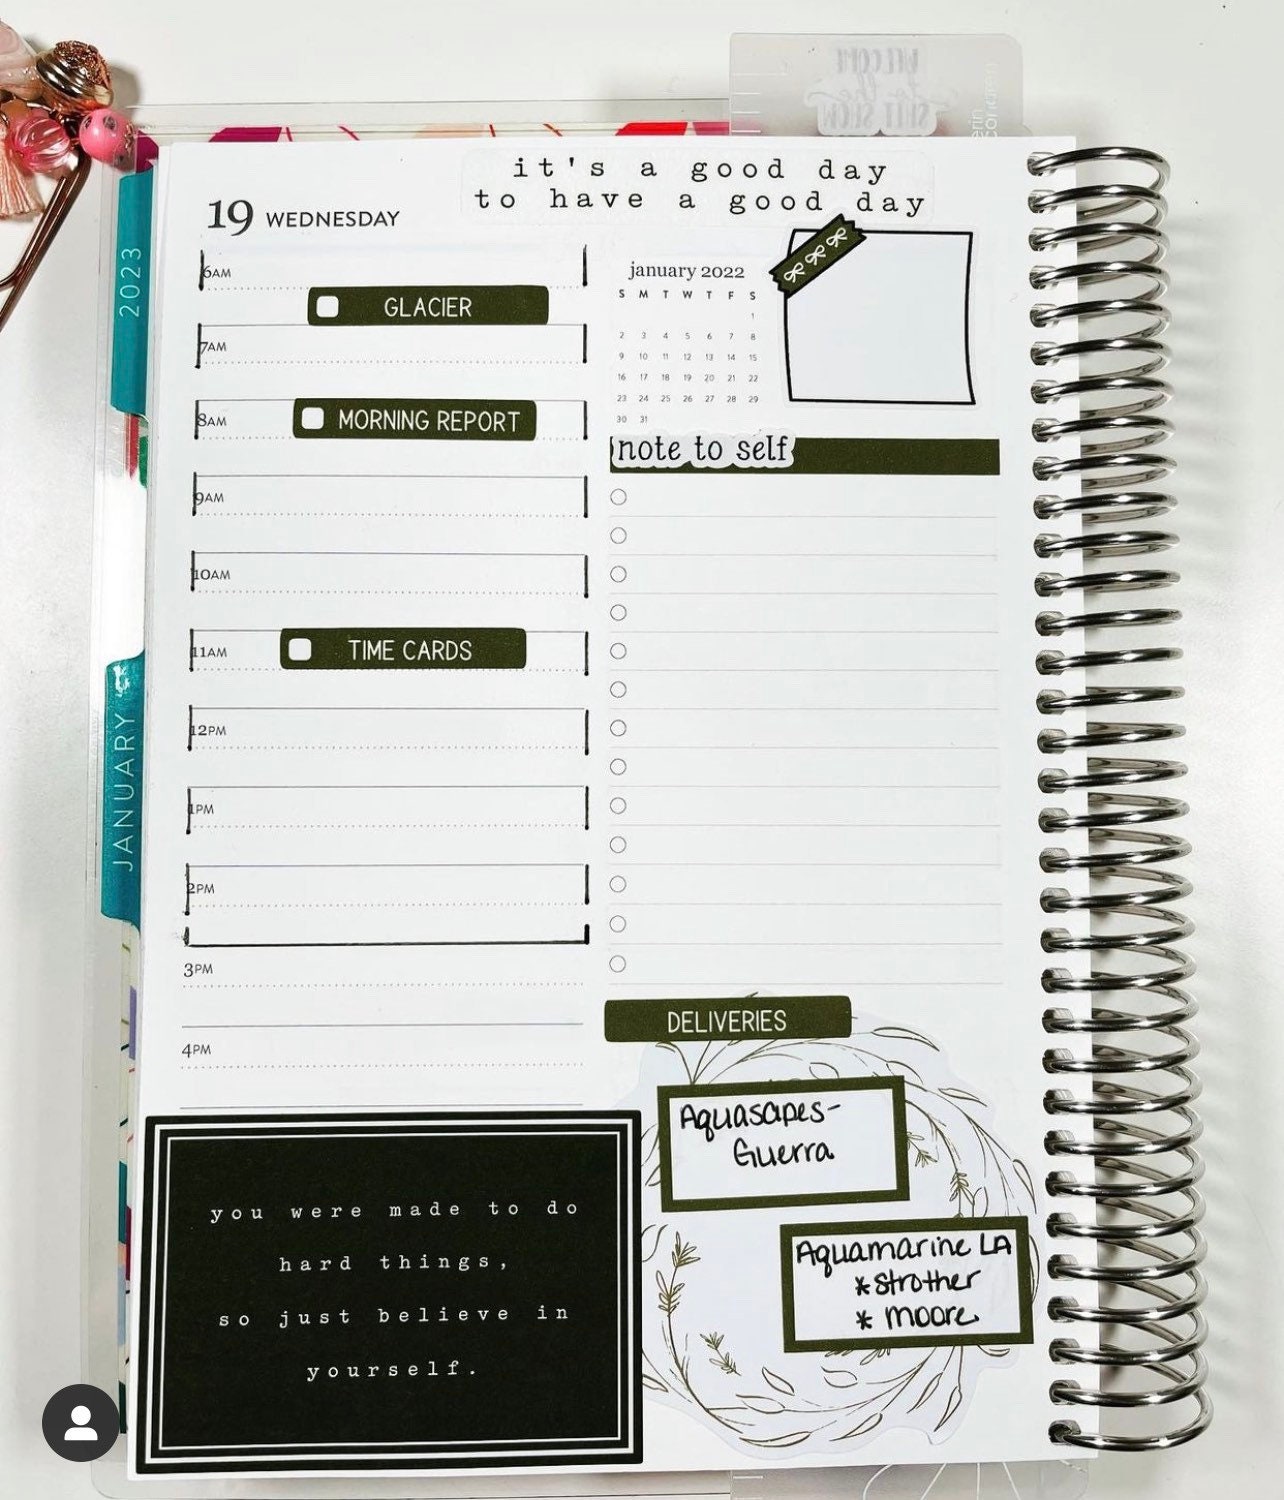 WELCOME
to the
SHIT SHOW
erin condren
it's a good day
to have a good day
19 WEDNESDAY
2023
JANUARY
6AM
GLACIER
7AM
8AM
MORNING REPORT
9AM
10AM
11AM
TIME CARDS
12PM
1PM
2PM
3PM
4PM
january 2022
S M T W T F S
1
2 3 4 5 6 7 8
9 10 11 12 13 14 15
16 17 18 19 20 21 22
23 24 25 26 27 28 29
30 31
note to self
DELIVERIES
Aquascapes-
Guerra
Aquamarine LA
*strother
* moore
you were made to do
hard things,
so just believe in
yourself.